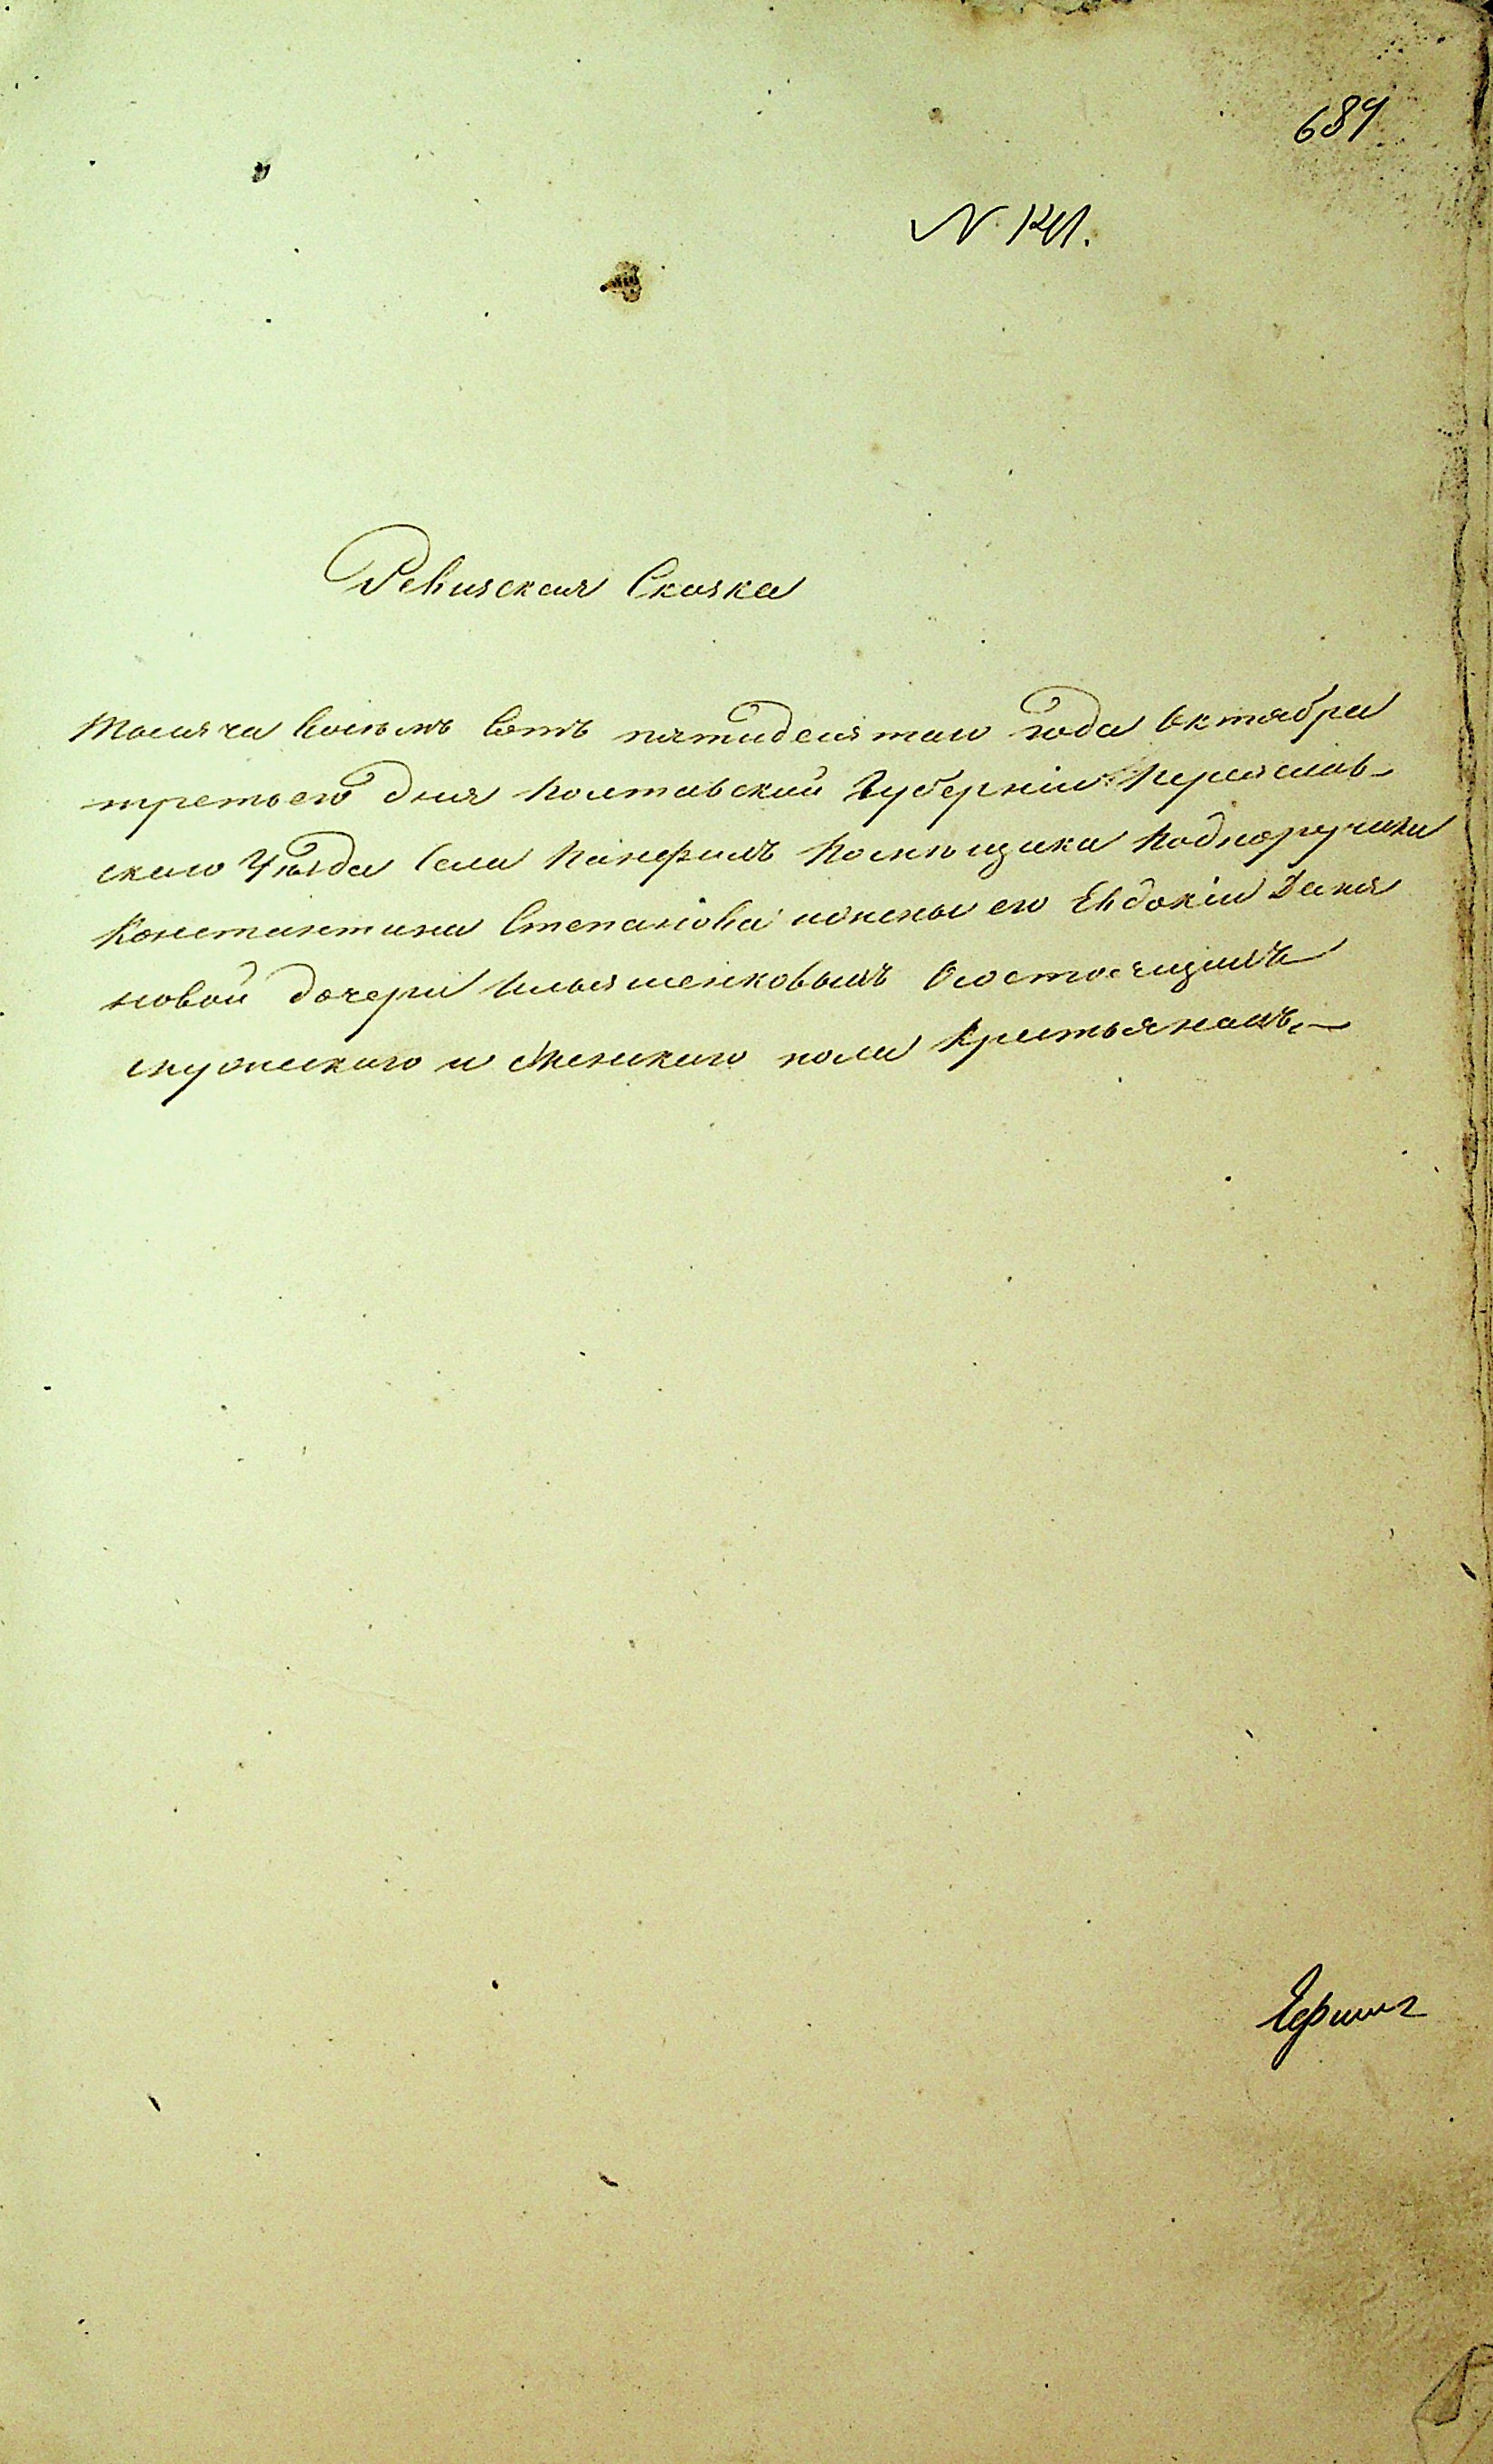 689
N.
Ревизская Сказка
Тысяча восемь сотъ пятидесятаго года Октября
третьего дня Полтавской Губерніи Переяслав-
скаго Уѣзда Села Панфилъ Помѣщика Подпоручика
Константина Степанова и жены его Евдокіи Демья
новой дочери Ильяшенковымъ о состоящихъ
мужескаго и женскаго пола крестьянахъ.